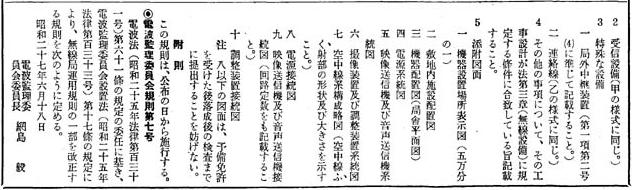 2 受信設備(甲の樣式に同じ。)
3 特殊な設備
一 局外中枢裝置(第一項第二号
(4)に準じて記載すること。)
二 連絡線(乙の樣式に同じ。)
4 その他の事項について、その工
事設計が法第三章(無線設備)に規
定する條件に合致している旨記載
すること。
5 添附図面
一 機器設置場所表示図(五万分
の一)
二 敷地内施設配置図
三 機器配置図(局舎平面図)
四 電源系統図
五 映像送信機及び音声送信機系
統図
六 撮像裝置及び調整裝置系統図
七 空中線系構成略図(空中線ふ
く射部の形状及び大きさを示す
こと。)
八 電源接続図
九 映像送信機及び音声送信機接
続図(回路定数をも記載するこ
と。)
十 調整裝置接続図
注 八以下の図面は、予備免許
を受けた後落成後の検査まで
に提出することを妨げない。
附 則
この規則は、公布の日から施行する。
◉電波監理委員会規則第七号
電波法(昭和二十五年法律第百三十
一号)第六十一條の規定の委任に基き、
電波監理委員会設置法(昭和二十五年
法律第百三十三号)第十七條の規定に
より、無線局運用規則の一部を改正す
る規則を次のように定める。
昭和二十七年六月十八日
電波監理委
員会委員長 網島 毅